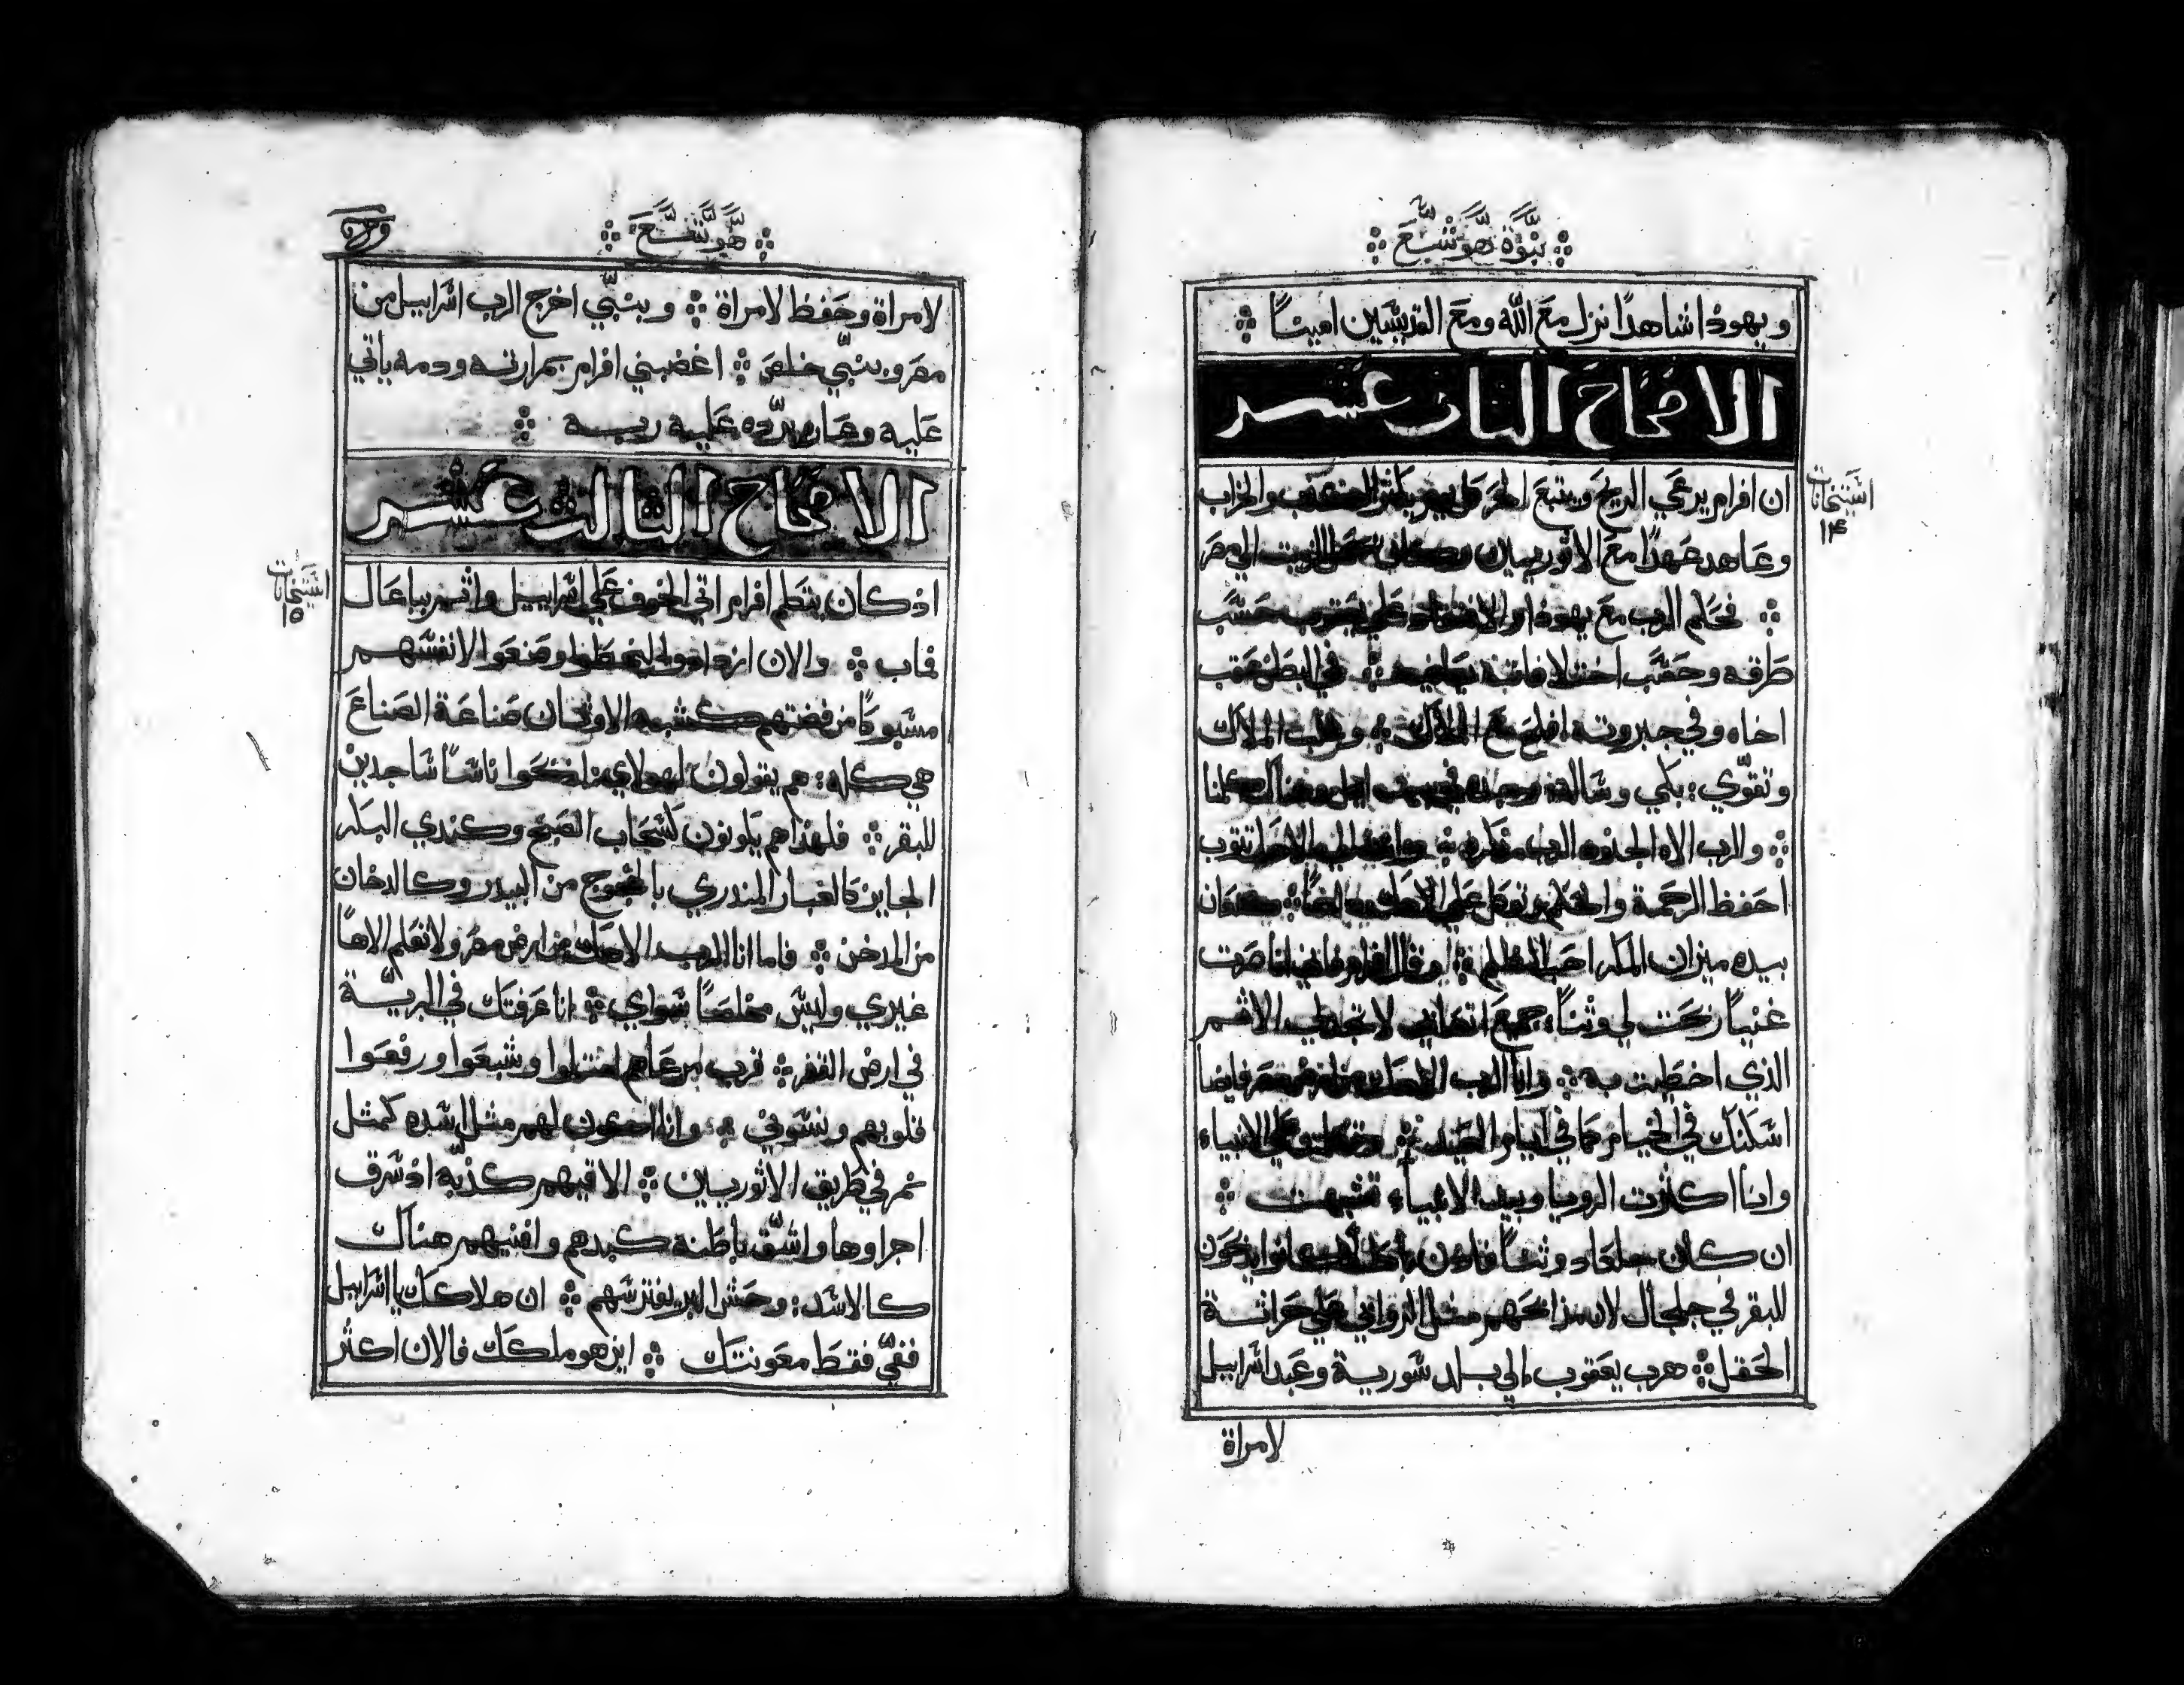 نبوة هوشع
ويهودا شاهدًا نزل مع الله ومع القديسين امينًا
الافتحاح التاني عشر
استيخانات
١٤
ان افرام يرعي الريح ويتبع الحر كل يوم يكثر الكذب والخراب
وعاهد عهدًا مع الاثوريين وكان يحمل الزيت الي مصر
فحكم الرب مع يهودا والافتقاد علي يعقوب حسب
طرقه وحسب اختلافاته يجازيه في البطن عقب
اخاه وفي جبروته افلح مع الملاك وغلب الملاك
وتقوي: بكي وساله وجده في بيت ايل وهناك كلمنا
والرب الاه الجنود الرب ذكره وانت الي الاهك تتوب
احفظ الرحمة والحكم وتوكل علي الاهك دايمًا كنعان
بيده ميزان المكر احب الظلم وقال افرام فاني انا صرت
غنيًا ربحت لي وثنًا: جميع اتعابي لا تجد لي الاثم
الذي اخطيت به وانا الرب الاهك من ارض مصر فايضًا
اسكنك في الخيام كما في ايام العيد وتكلمت علي الانبياء
وانا اكثرت الرويا وبيد الانبياء تشبهت
ان كان جلعاد وثنًا فاذن باطلًا كانوا يذبحون
للبقر في جلجال لان مذابحهم مثل الروابي علي حراثة
الحقل هرب يعقوب الي بلد سورية وعبد اسراييل
لامراة
هوشع
لامراة وحفظ لامراة وبنبي اخرج الرب اسراييل من
مصر وبنبي خلص اغضبني افرام بمرارته ودمه ياتي
عليه وعاره يرده عليه ربه
الافتحاح الثالث عشر
استيخانات
١٥
اذ كان يتكلم افرام اتي الخوف علي اسراييل واثم بباعال
فمات والان ازدادوا ليخطوا وصنعوا لانفسهم
مسبوكًا من فضتهم كشبه الاوثان صناعة الصناع
هي كله: هم يقولون لهولاي اذبحوا ناسًا ساجدين
للبقر فلهذا هم يكونون كسحاب الصبح وكندي البكر
الجايز كالغبار المندري بالعجوج من البيدر وكالدخان
من المدخن فاما انا الرب الاهك من ارض مصر ولا تعلم الاهًا
غيري وليس مخلصًا سواي انا عرفتك في البرية
في ارض القفر قرب مرعاهم امتلوا وشبعوا ورفعوا
قلوبهم ونسوني وانا اكون لهم مثل اسده كمثل
نمر في طريق الاثوريين الاقيهم كذبه اذ سرق
اجراوها واشق باطنه كبدهم وافنيهم هناك
كالاسد: وحش البر يفترسهم ان هلاكك يا اسراييل
ففي فقط معونتك اين هو ملكك فالان اكثر